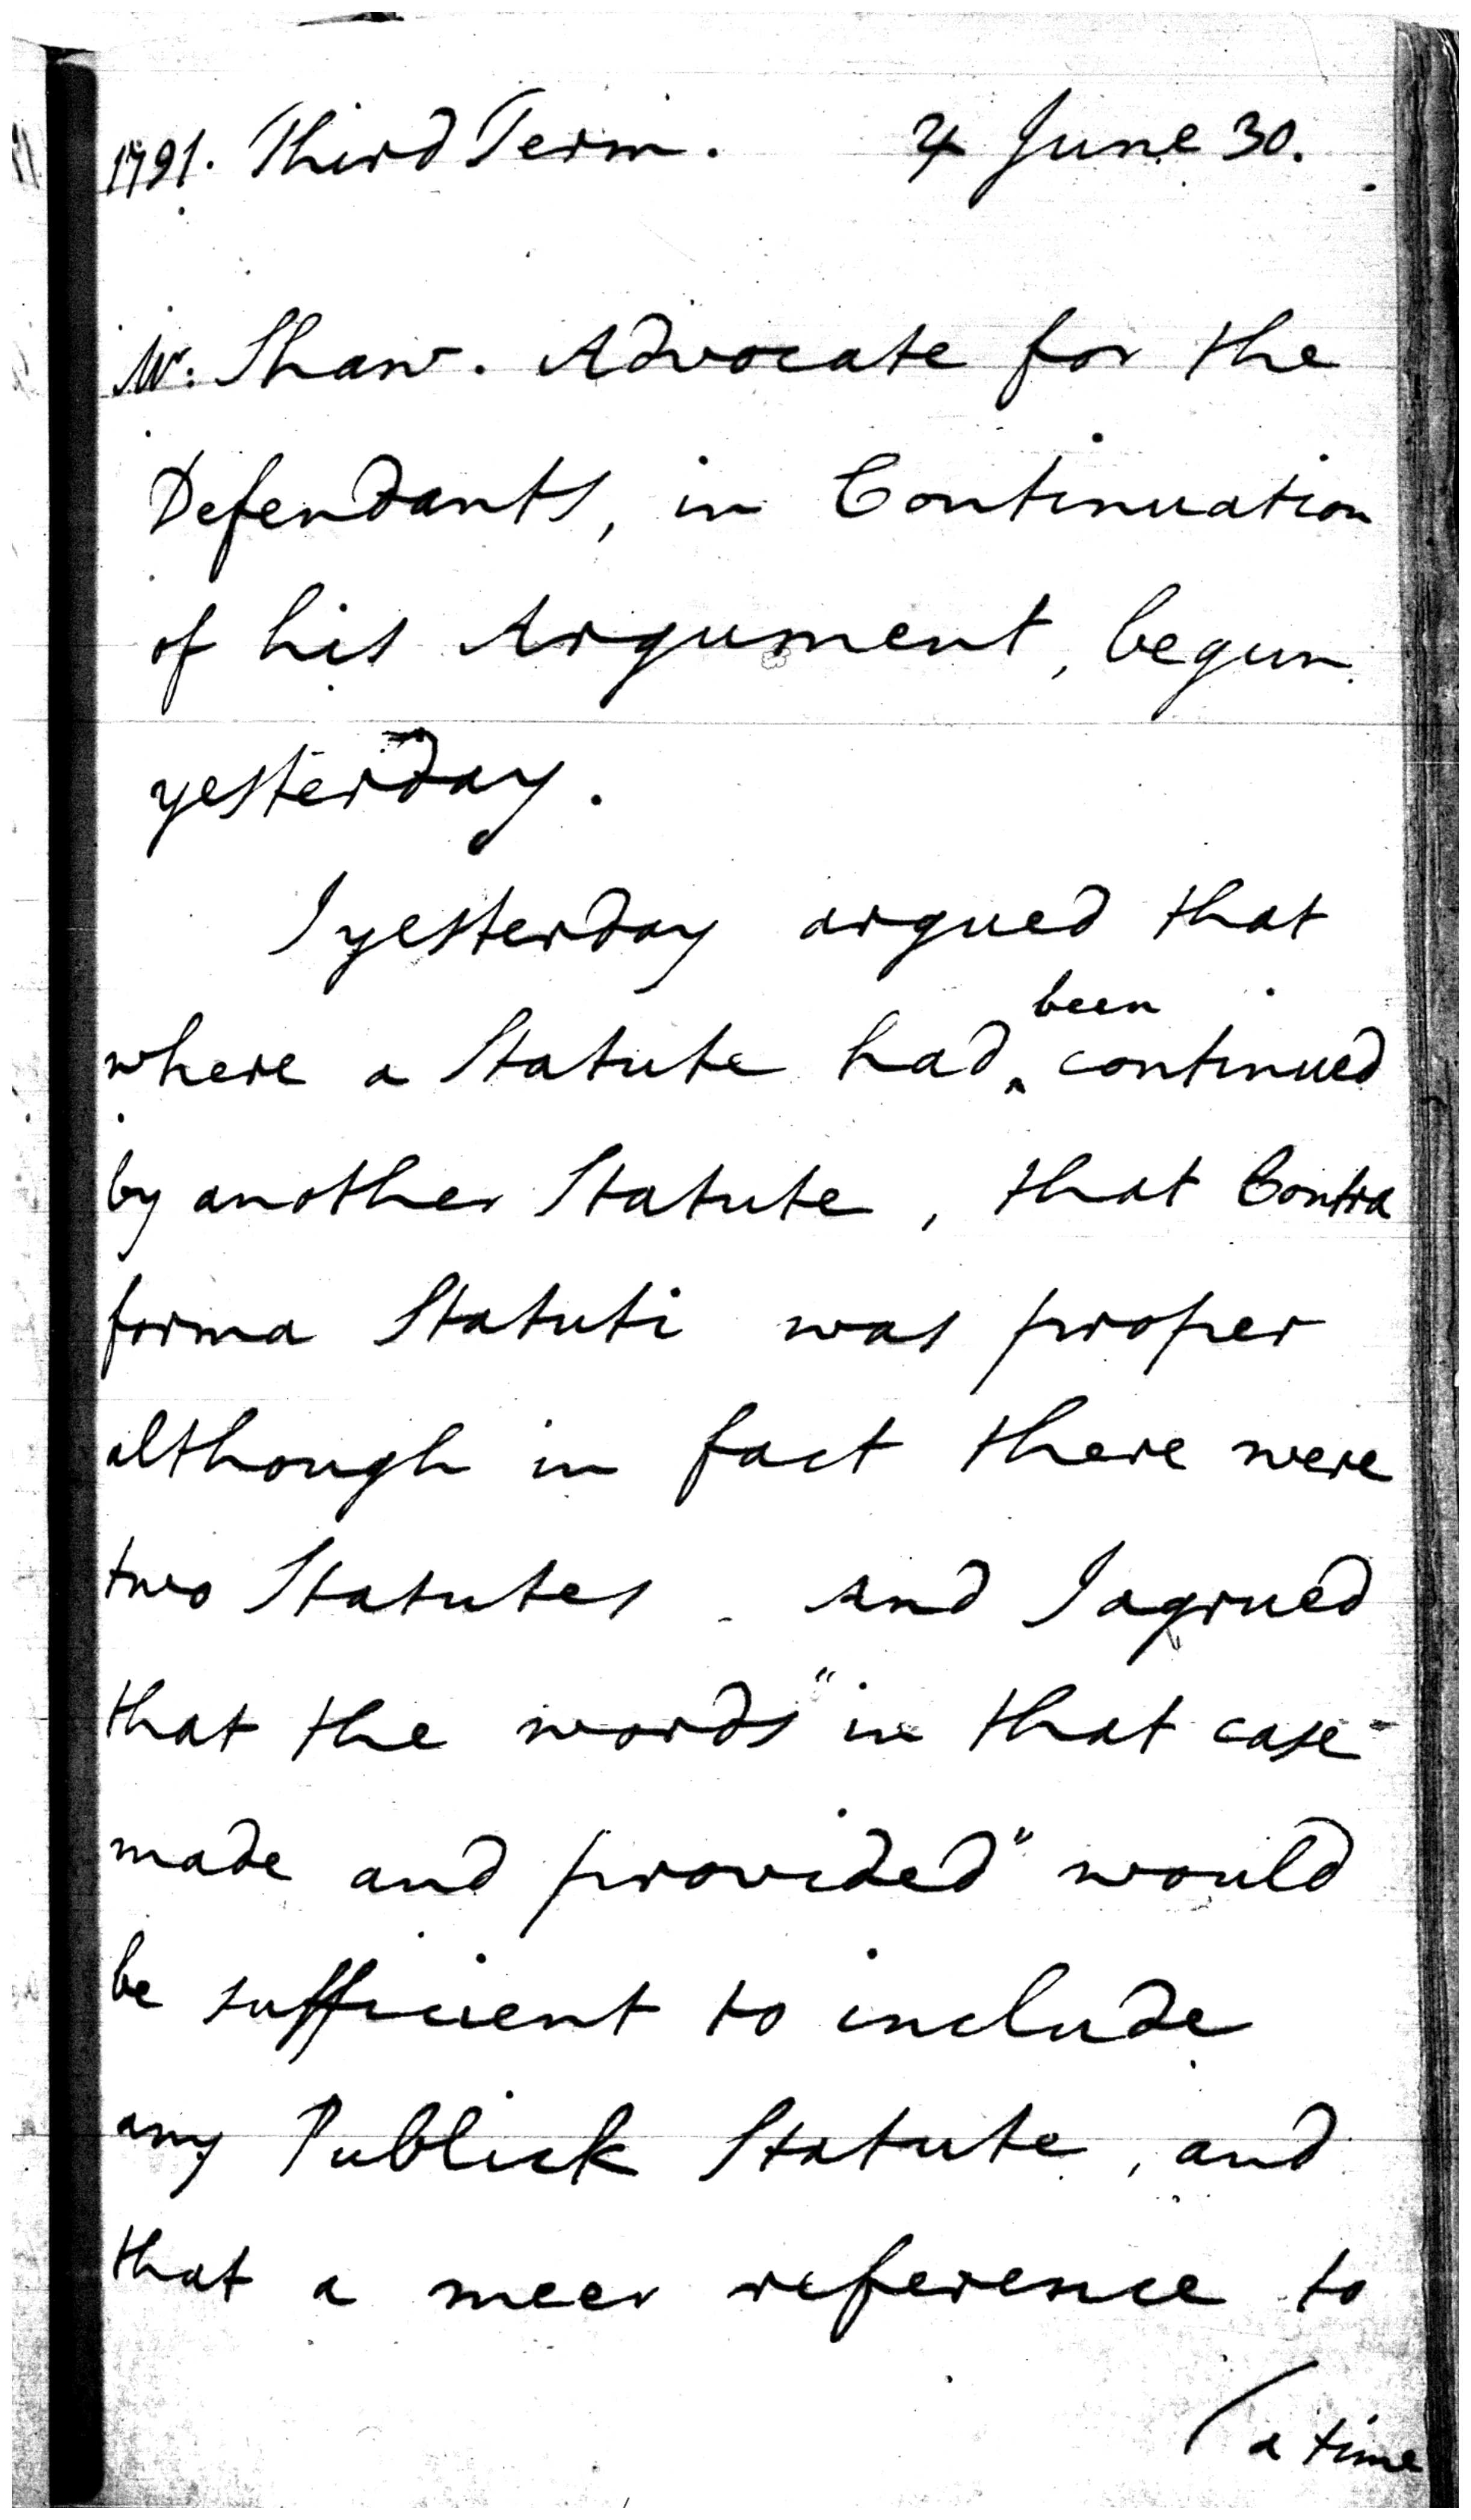 1791. Third Term. ♃ June 30.
Mr: Shaw. Advocate for the
Defendants, in Continuation
of his Argument, begun
yesterday.
I yesterday argued that
been
where a Statute had ‸ continued
by another Statute, that Contra
forma Statuti was proper
although in fact there were
two Statutes. And I agrued
that the words "in that case
made and provided" would
be sufficient to include
any Publick Statute, and
that a meer reference to
/a time